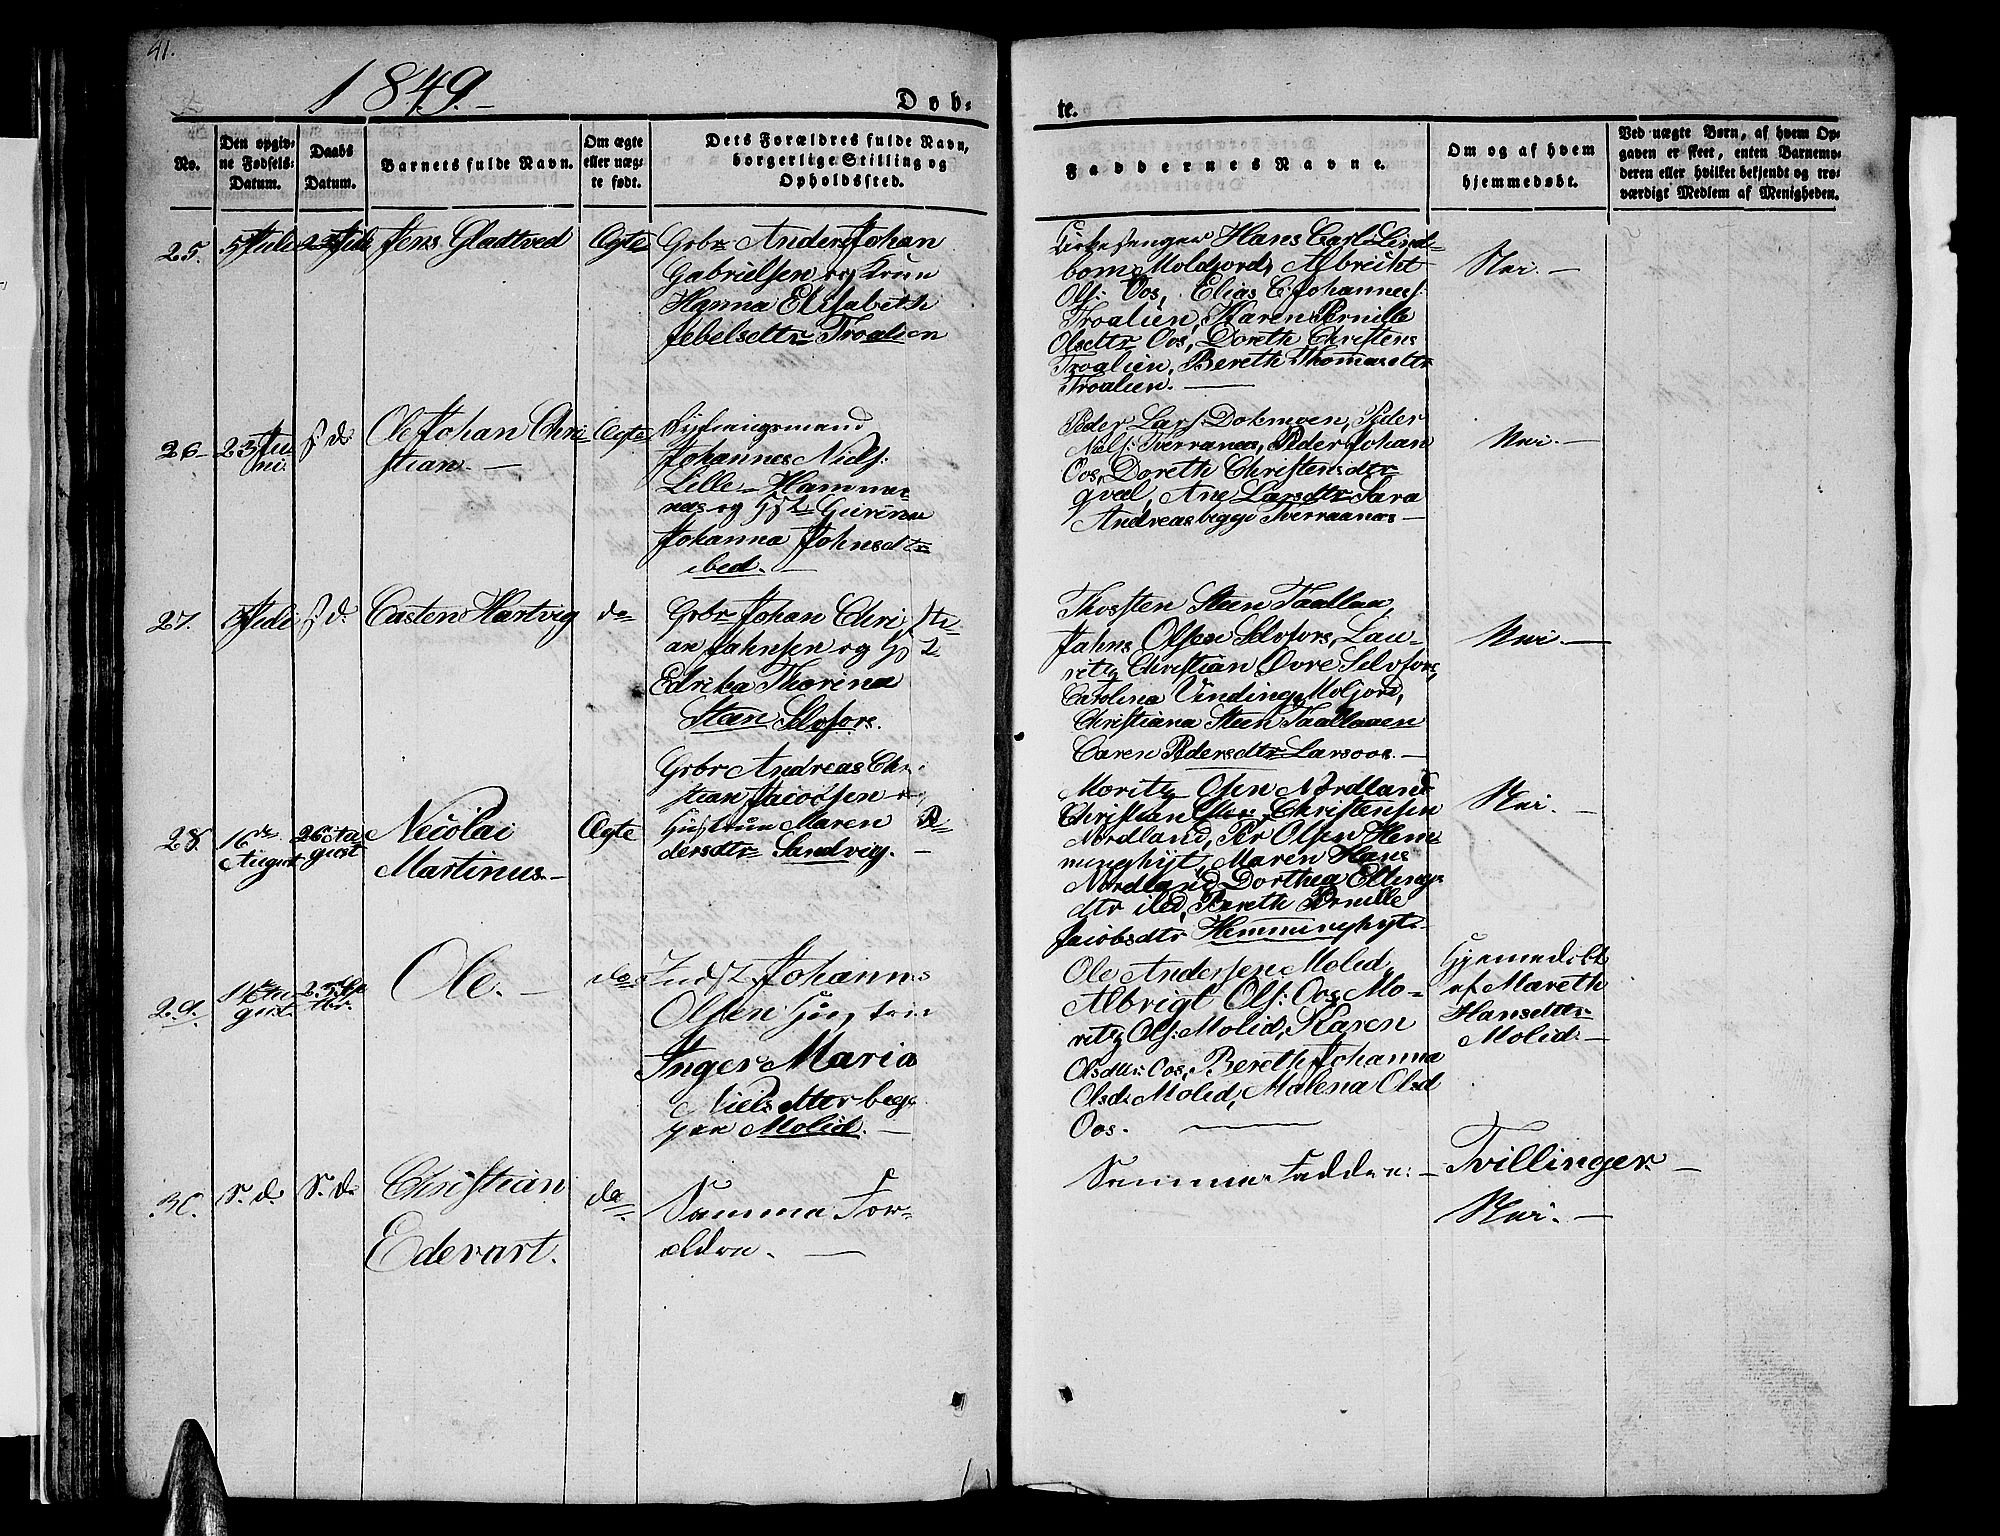 41.
1849.
Døb-
te.
No.
Den opgiv-
ne Fødsels-
Datum.
Daabs
Datum.
Barnets fulde Navn.
Om ægte
eller uæg-
te født.
Dets Forældres fulde Navn,
borgerlige Stilling og
Opholdssted.
Faddernes Navne.
Om og af hvem
hjemmedøbt.
Ved uægte Børn, af hvem Op-
gaven er skeet, enten Barnemo-
deren eller hvilket bekjendt og tro-
værdigt Medlem af Menigheden.
25.
5 Juli
Juli
Jens Gladtved
Ægte
Grbr Anders Johan
Gabrielsen og Kone
Hanna Elisabeth
Jebelsettr Troalien
Kirkesanger Hans Carl Lind-
bom Moldjord, Albreikt
Ols: Oos, Elias C: Johannes:
Troalien, Karen Pernille
Olsdtr Oos, Doreth Christens
Troalien, Bereth Thomasdtr
Troalien. —
Nei. —
26.
23 Ju
ni
s. d.
Ole Johan Chri
stian. —
Ægte
Johannes Niels:
Lille-Hamme
næs og Hst Gurina
Johanna Johnsdtr
ibed. —
Peder Lars: Dokmoen, Peder
Niels: Tverranæs, Peder Johan
Oos, Doreth Christensdtr
Qvæl, Ane Larsdtr Sara
Andreas begge Tverraanæs —
Nei. —
27.
Juli
s. d.
Casten Hartvig
do
Grbr Johan Chri sti-
an Jahnsen og H st
Edrika Thorina
Steen Selvfors.
Thorsten Steen Taallaa,
Jahns Olsen Selvfors, Lau-
ritz Christian Dore Selvfors,
Carolina Vinding Moljord,
Christiana Steen Taallaaen
Caren Pedersdtr Larsoos. —
Nei. —
28.
16de
August
26 Au
gust
Nicolai
Martinus —
Ægte
Grbr Andreas Chri
stian Jacobsen og
Hustrue Maren Pe-
dersdtr Sandvig. —
Moritz Olsen Nordland
Christian Christensen
Nordland, Per Olsen Hem-
minghyt, Maren Hans
Nordland, Dorthea Ellings
dtr ibed, Bereth Pernille
Jacobsdtr Hemminghyt.
Nei. —
29.
gust.
tbr.
Ole. —
do
Indst Johannes
Olsen Hustrue
Inger Maria
Nielsdtter beg-
gen Molid. —
Ole Andersen Molid,
Albrigt Ols: Oos, Mo-
ritz Ols: Molid, Karen
Olsdtr: Oos, Bereth Johanna
Olsdr Molid, Malena Olsd
Oos. —
Hjemmedøbt
af Mareth
Hansdtter
Molid. —
30.
S. d.
S. d.
Christian
Edevart.
do
Samma For-
ældre. —
Samma Faddere: —
Tvillinger. —
Nei. —